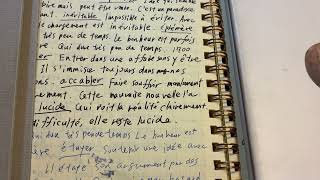 mais peut être vraie. C'est un paradoxe
ant. inévitable Impossible à éviter. Avec
chargement est inévitable. Ephémère
très peu de temps. Le bonheur est parfois
re. Qui dure très peu de temps.
er Entrer dans une affaire sans y être
Il s'immisce toujours dans nos
ons. accabler Faire souffrir moralement
ment. Cette mauvaise nouvelle l'a
lucide Qui voit la réalité clairement
difficulté, elle reste lucide.
ui dure très peu de temps Le bonheur est
ère étayer Soutenir une idée avec
Il étaye son argument par des